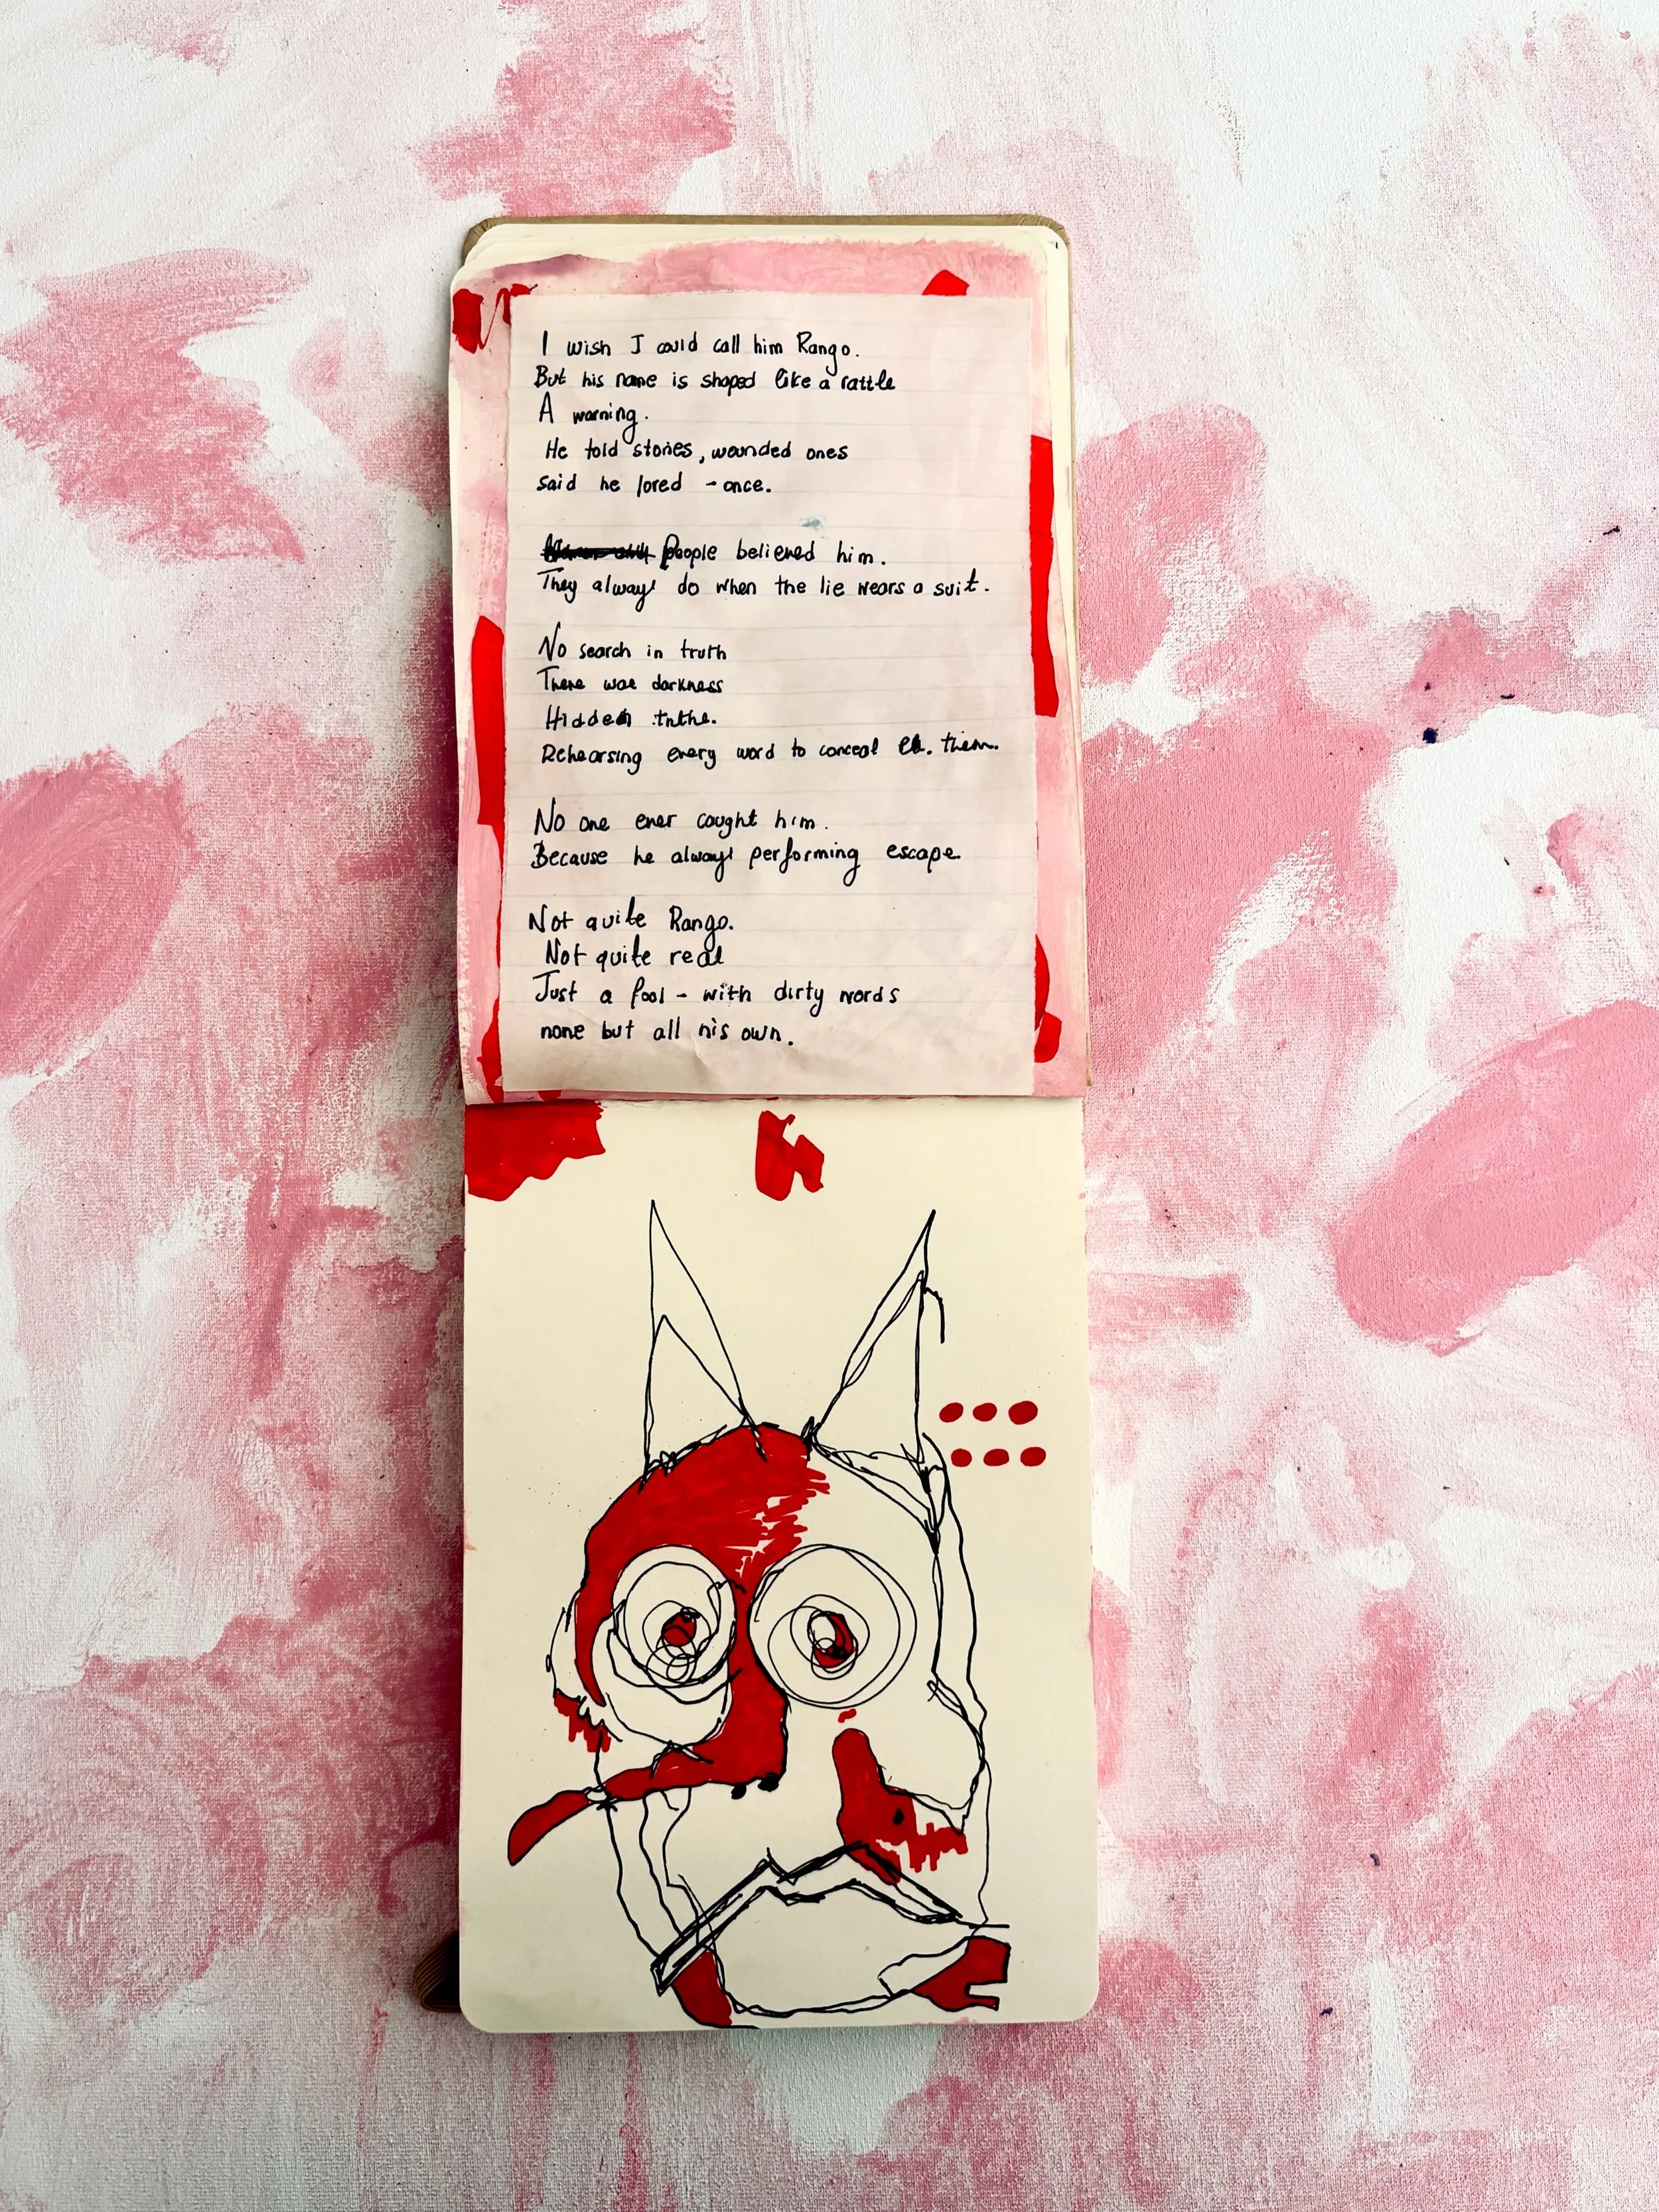 I wish I could call him Rango.
But his name is shaped like a rattle
A warning.
He told stories, wounded ones
said he loved - once.
People believed him.
They always do when the lie wears a suit.
No search in truth
There was darkness
Hidden
Rehearsing every word to conceal them.
No one ever caught him.
Because he always performing escape.
Not quite Rango.
Not quite real
Just a fool - with dirty words
none but all his own.